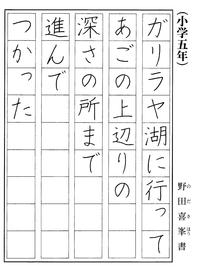 (小学五年)
ガリラヤ湖に行って
あごの上辺りの
深さの所まで
進んで
つかった
野田喜峯書
のだきほう